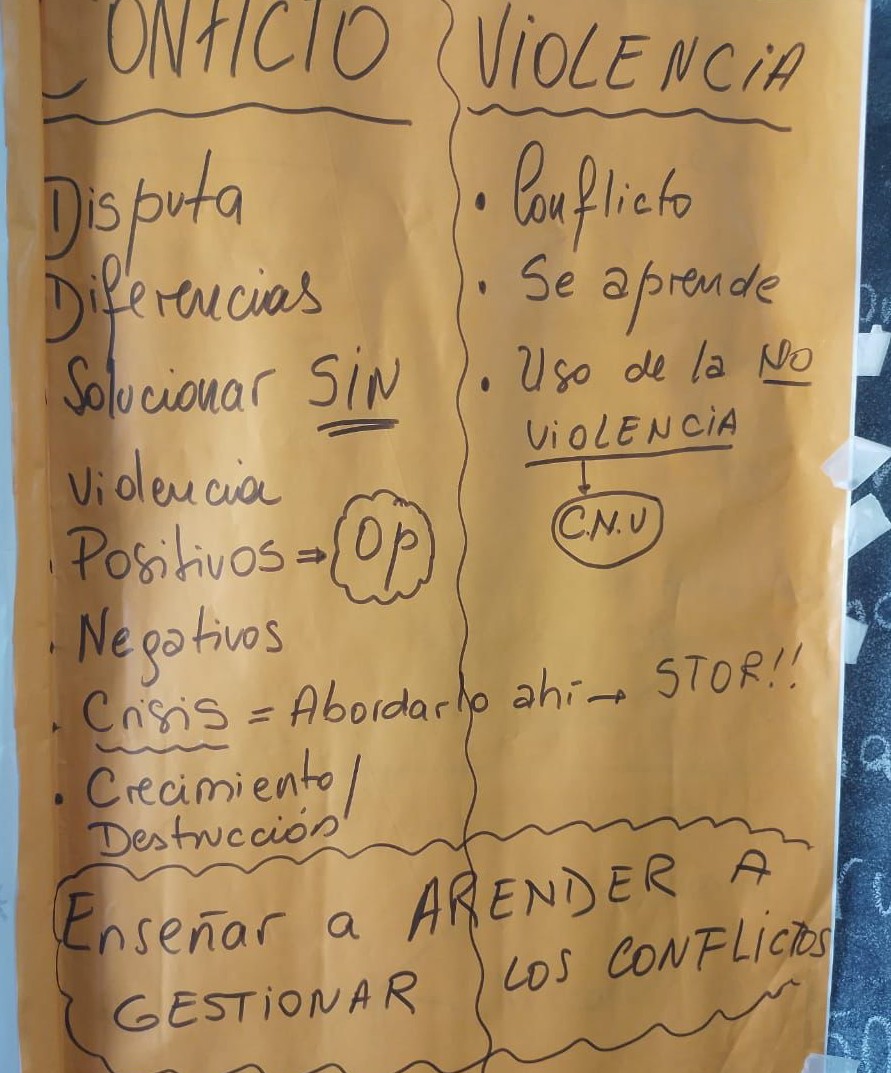 CONFlICTO
Disputa
Diferencias
Solucionar SIN
violencia
Positivos ⇒ Op
• Negativos
• Crisis = Abordarlo ahí → STOP!!
• Crecimiento/
Destrucción
VIOLENCIA
• Conflicto
• Se aprende
• Uso de la NO
VIOLENCIA
C.N.V
Enseñar a ARENDER A
GESTIONAR LOS CONFLICTOS